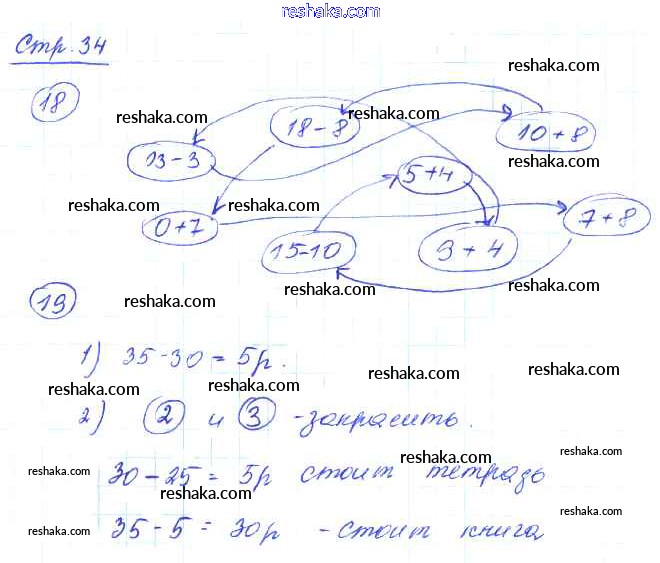 reshaka.com
Стр. 34
reshaka.com
18
reshaka.com
18-8
reshaka.com
10+8
13-3
reshaka.com
reshaka.com
5+4
reshaka.com
reshaka.com
reshaka.com
0+7
7+8
15-10
9+4
reshaka.com
19
reshaka.com
reshaka.com
reshaka.com
1) 35-30=5р.
reshaka.com
reshaka.com
reshaka.com
2) 2 и 3 -закрасить.
reshaka.com
reshaka.com
30-25=5р стоит тетрадь
reshaka.com
reshaka.com
reshaka.com
35-5=30р -стоит книга
reshaka.com
reshaka.com
reshaka.com